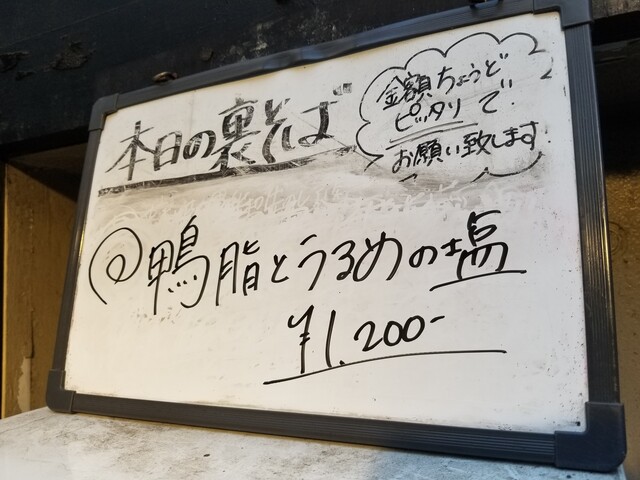 本日の裏そば
金額ちょうど
ピッタリで
お願い致します
鴨脂とうるめの塩
¥1.200-